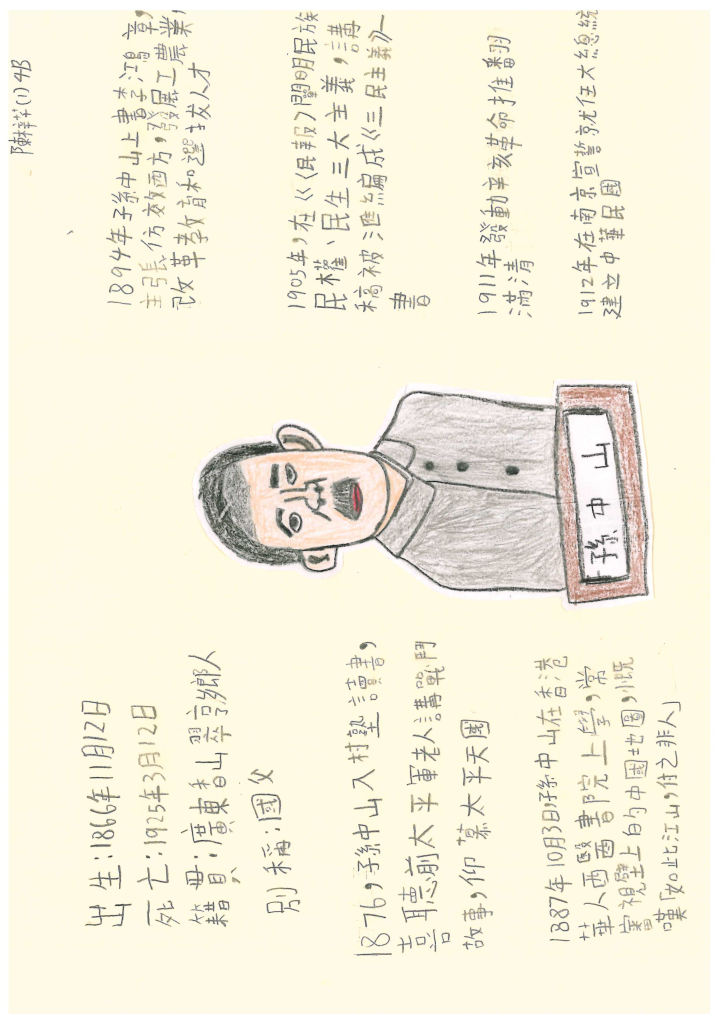 陳梓芊(1) 4B
出生:1866年11月12日
死亡:1925年3月12日
籍貫:廣東香山翠亨鄉人
別稱:國父
1876,孫中山入村塾讀書,
喜聽前太平軍老人講戰鬥
故事,仰慕太平天國
1887年10月3日,孫中山在香港
華人西醫書院上學,常
審視壁上的中國地圖,慨
嘆「如此江山,付之非人」
孫中山
1894年孫中山上書李鴻章,
主張仿效西方,發展工農業,
改革教育和選拔人才
1905年,在《民報》闡明民族
民權、民生三大主義,講
稿被匯編成《三民主義》一
書
1911年發動辛亥革命推翻
滿清
1912年在南京宣誓就任大總統
建立中華民國